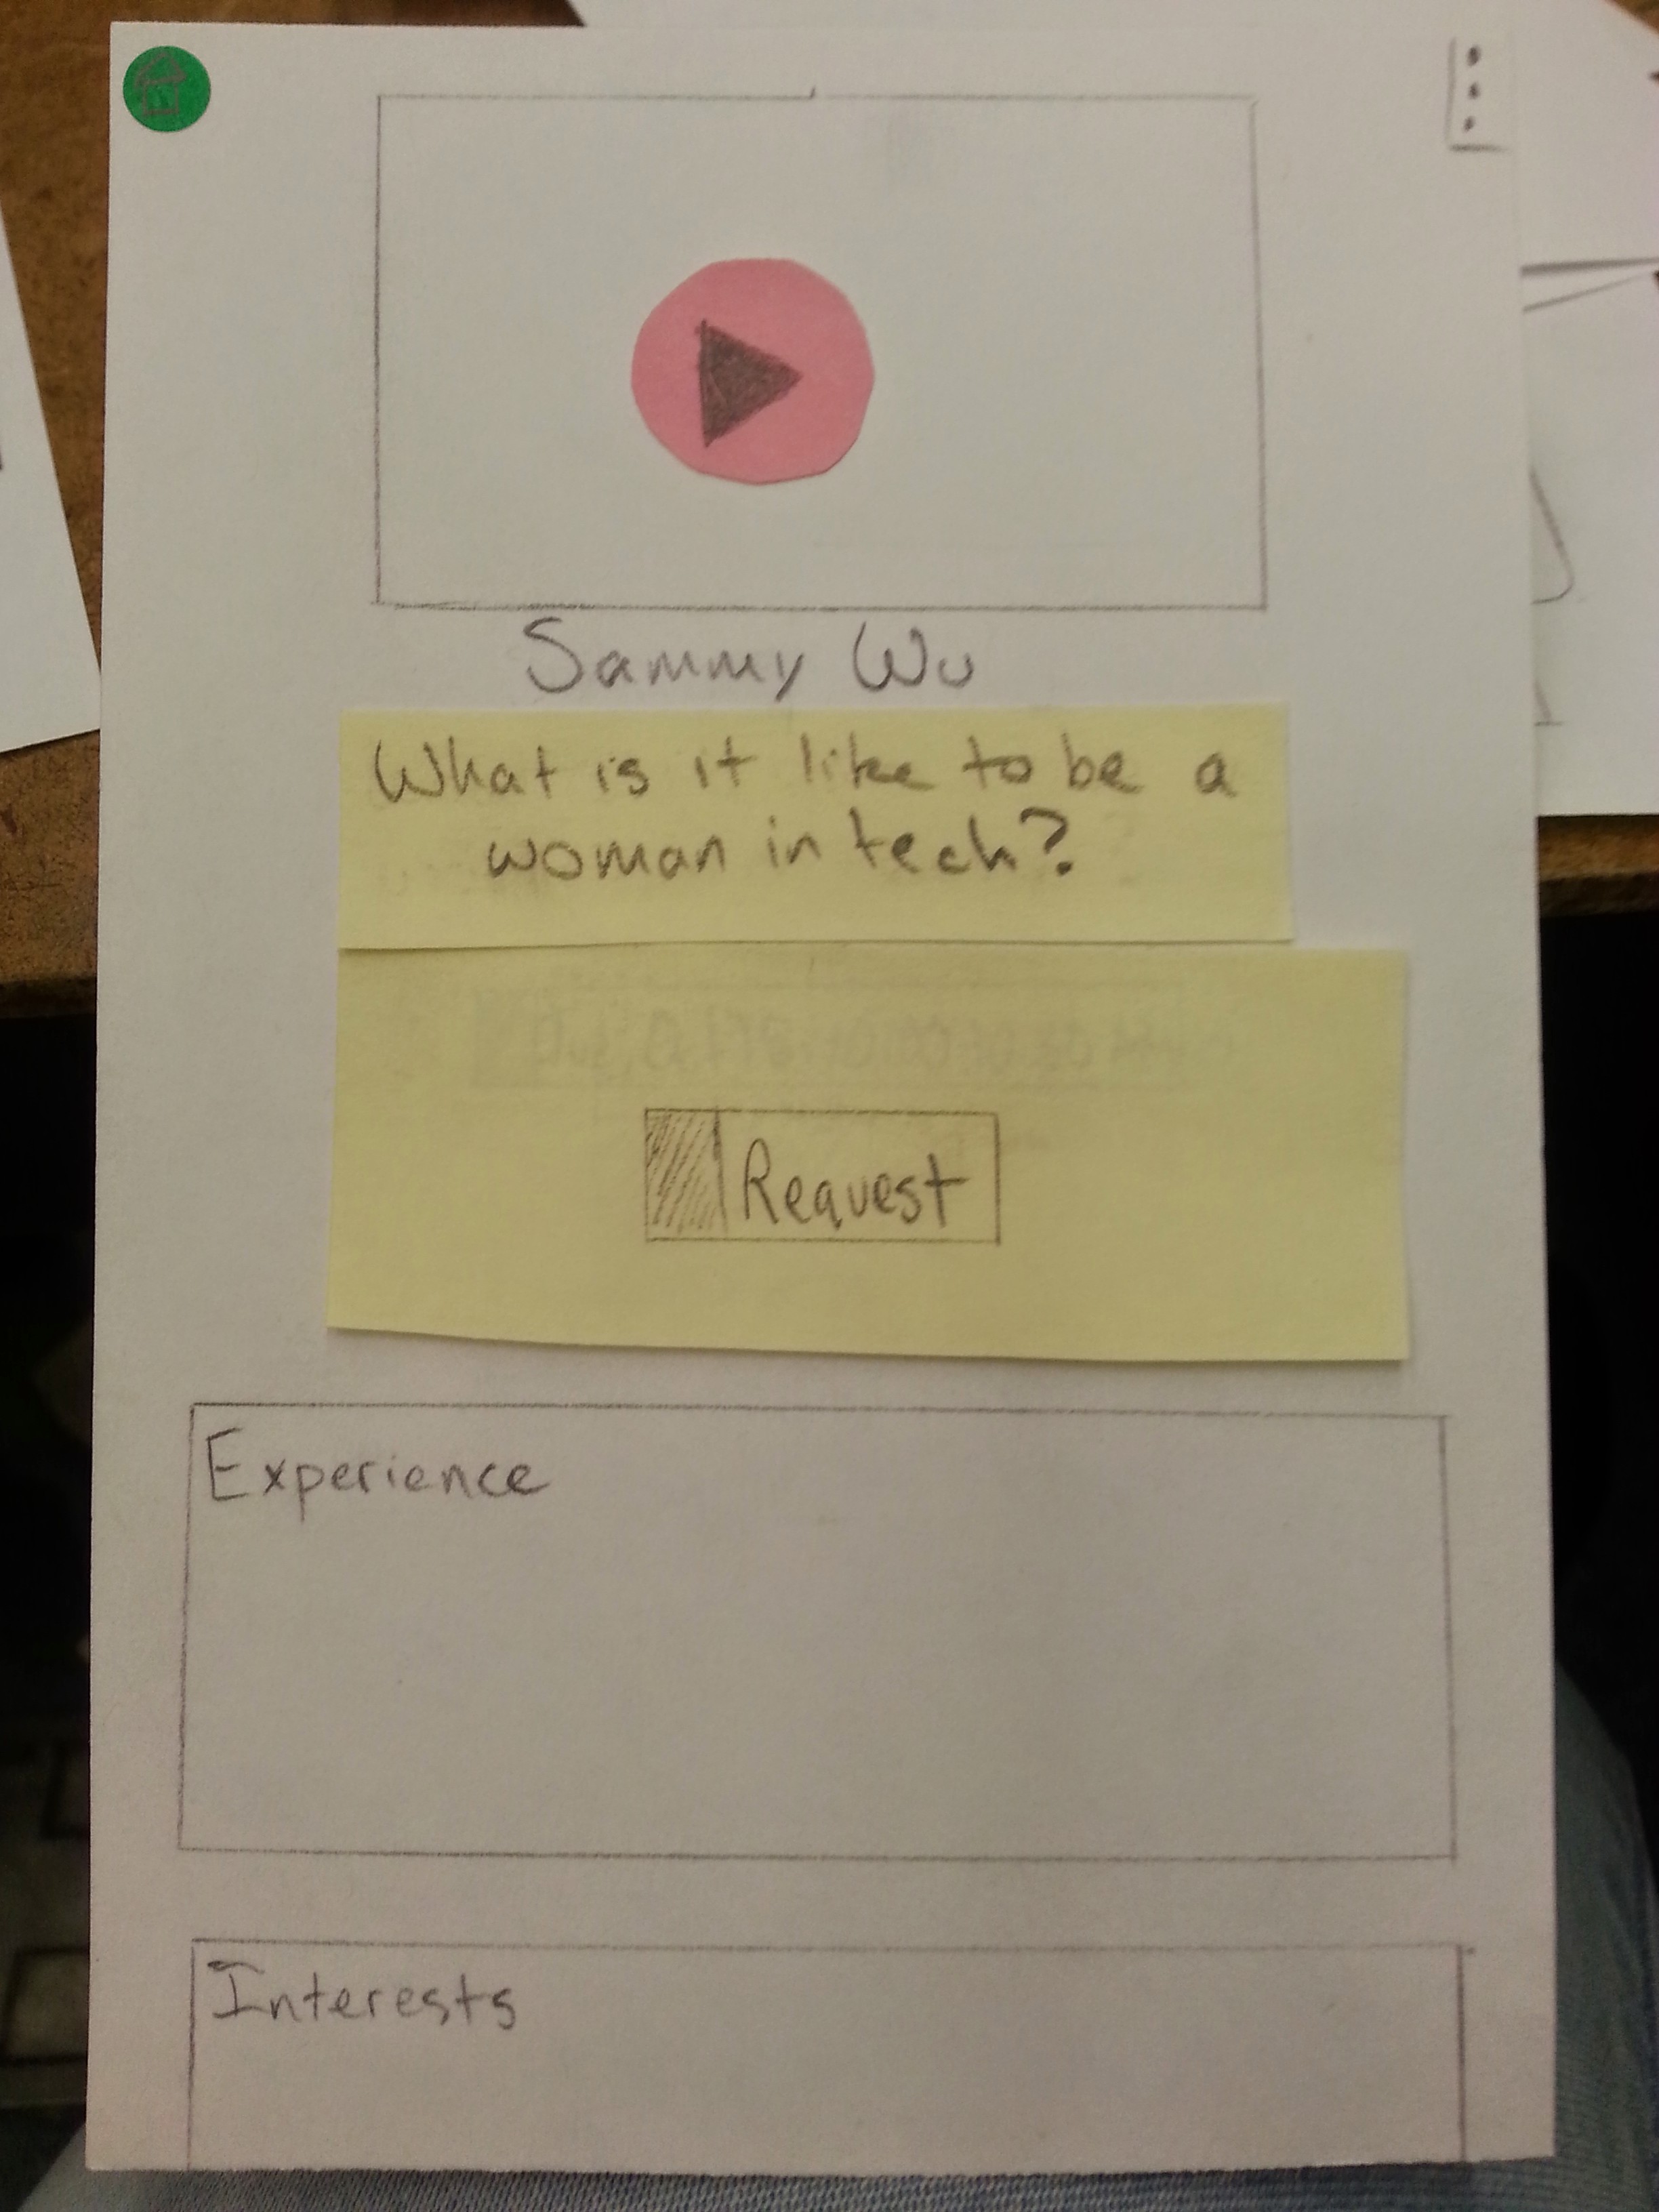 Sammy Wu
What is it like to be a
woman in tech?
Request
Experience
Interests